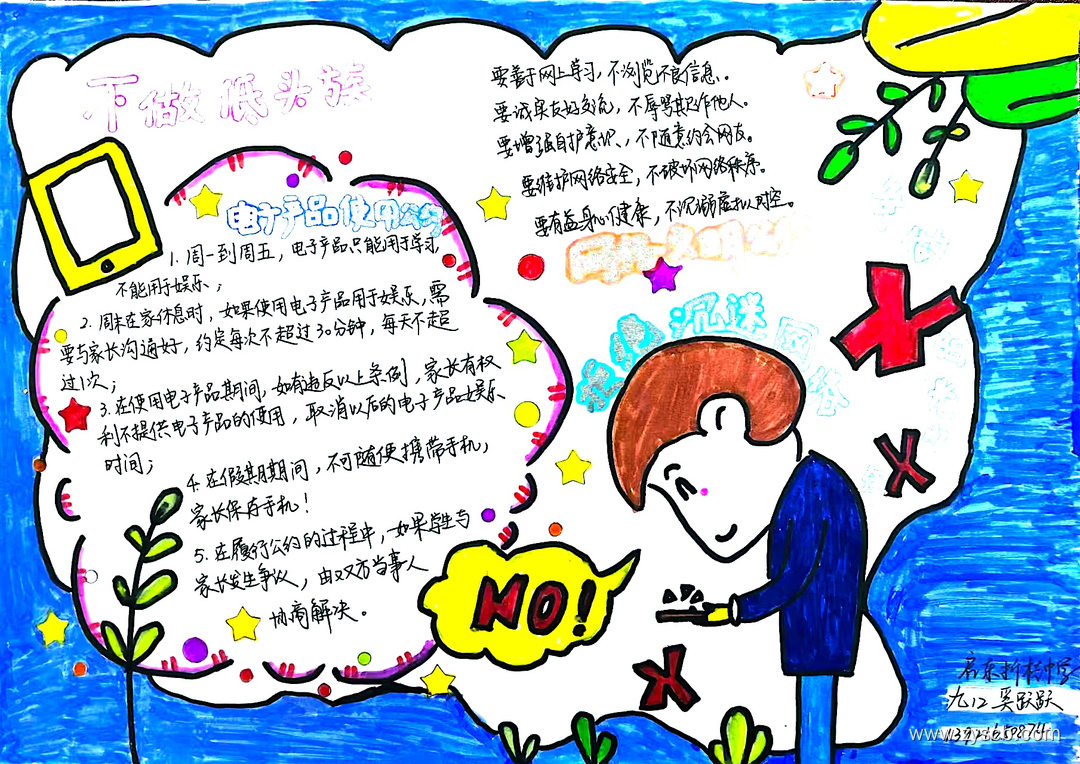 不做低头族
电子产品使用公约
1. 周一到周五，电子产品只能用于学习，
不能用于娱乐；
2. 周末在家休息时，如果使用电子产品用于娱乐，需
要与家长沟通好，约定每次不超过30分钟，每天不超
过1次；
3. 在使用电子产品期间，如有违反以上条例，家长有权
利不提供电子产品的使用，取消以后的电子产品娱乐
时间；
4. 在假期期间，不可随便携带手机，
家长保存手机！
5. 在履行公约的过程中，如果学生与
家长发生争议，由双方当事人
协商解决。
要善于网上学习，不浏览不良信息。
要诚实友好交流，不辱骂欺诈他人。
要增强自护意识，不随意约会网友。
要维护网络安全，不破坏网络秩序。
要有益身心健康，不沉溺虚拟时空。
网络文明
沉迷网
NO!
启东折桂中学
九12 奚跃跃
www.
.com